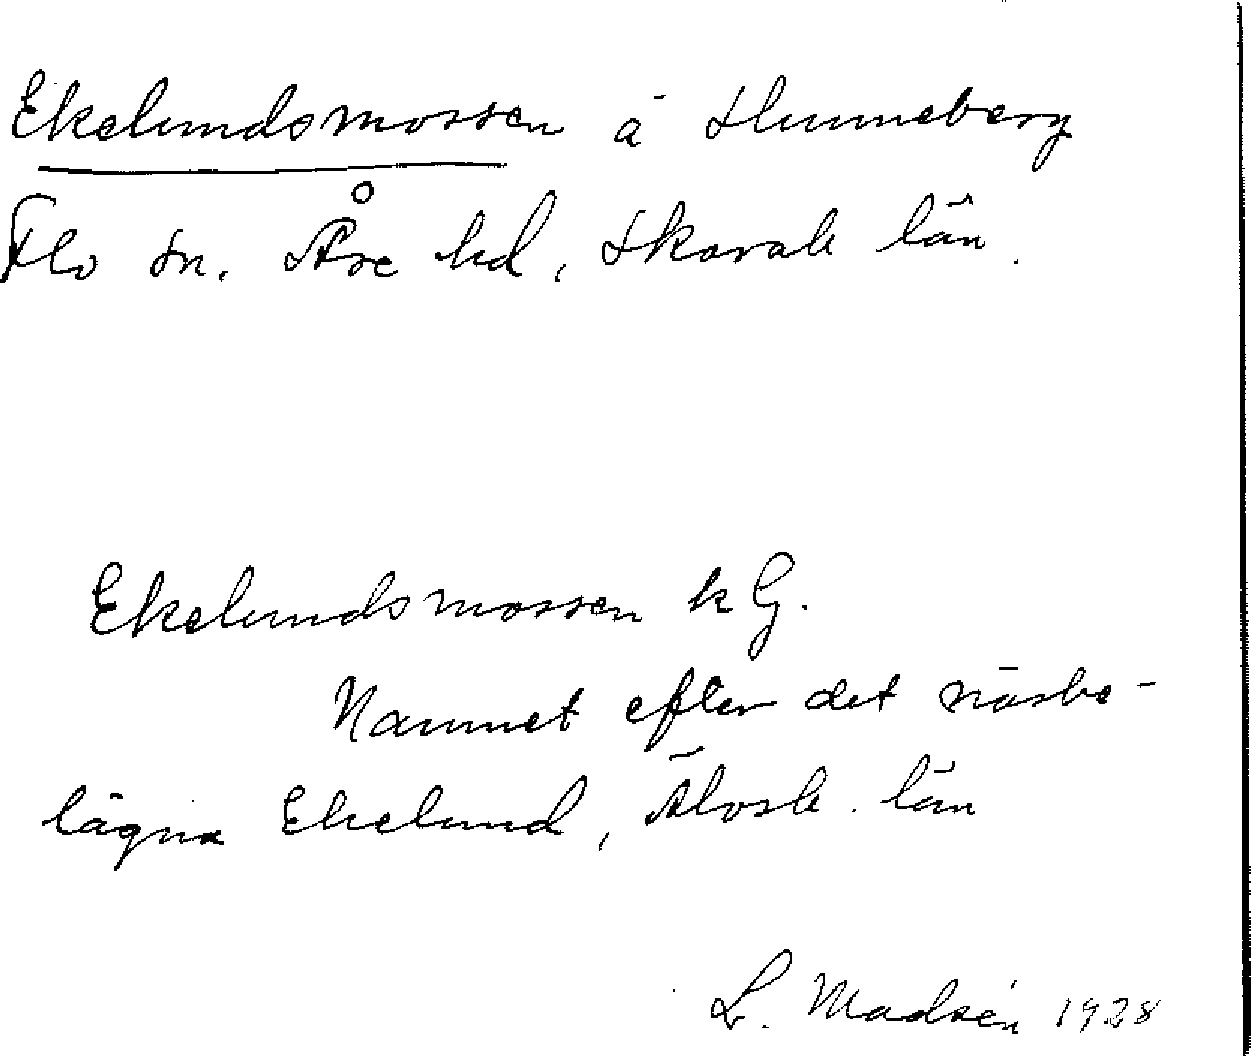 Ekelundsmossen å Hunneberg
Flo sn. Åse hd, Skarab län.
Ekelundsmossen k G.
Namnet efter det närbe-
lägna Ekelund, Älvsb. län
L. Madsén 1928